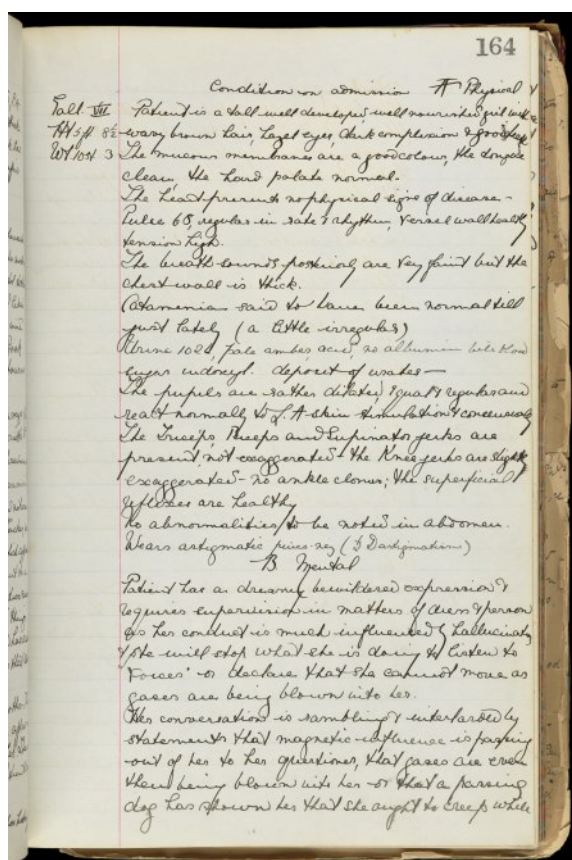 164
Condition on admission A Physical
Patient is a tall well developed well nourished girl with
Ht 5ft 8½ wavy brown hair, hazel eyes, dark complexion & good teeth
Wt 10st 3 The mucous membranes are a good colour, the tongue
clean, the hard palate normal.
The heart presents no physical signs of disease -
Pulse 68, regular in rate & rhythm, vessel wall healthy
tension high.
The breath sounds posteriorly are very faint but the
chest wall is thick.
Catamenia said to have been normal till
just lately (a little irregular)
Urine pale amber acid, no albumin bile blood
sugar indoxyl. deposit of urates -
The pupils are rather dilated equal & regular and
react normally to L. A skin stimulation & consensually
The Triceps, Biceps and Supinator jerks are
present, not exaggerated - the Knee jerks are slightly
exaggerated - no ankle clonus; the superficial
reflexes are healthy
No abnormalities to be noted in abdomen.
Wears astigmatic pince-nez
B Mental
Patient has a dreamy bewildered expression &
requires supervision in matters of dress & person
as her conduct is much influenced by hallucinations
& she will stop what she is doing to listen to
'Voices' or declare that she cannot move as
gases are being blown into her.
Her conversation is rambling & interlarded by
statements that magnetic influence is passing
out of her to her questioner, that gases are even
then being blown into her or that a passing
dog has shown her that she ought to creep while